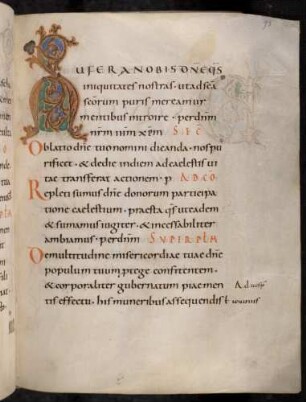 AUFER A NOBIS DNE QS
iniquitates nostras. ut ad scā
scōrum puris mereamur
mentibus introire. per dnm
nrm ihm xpm. SEC
Oblatio dne tuo nomini dicanda. nos pu
rificet. & de die in diem ad caelestis ui
tae transferat actionem. p AD CO
Repleti sumus dne donorum participa
tione caelestium. praesta qs ut eadem
& sumamus iugiter. & incessabiliter
ambiamus. per dnm SUPER PLM
De multitudine misericordiae tuae dne
populum tuum protege confitentem.
& corporaliter gubernatum piae men
tis effectu. his muneribus assequendis